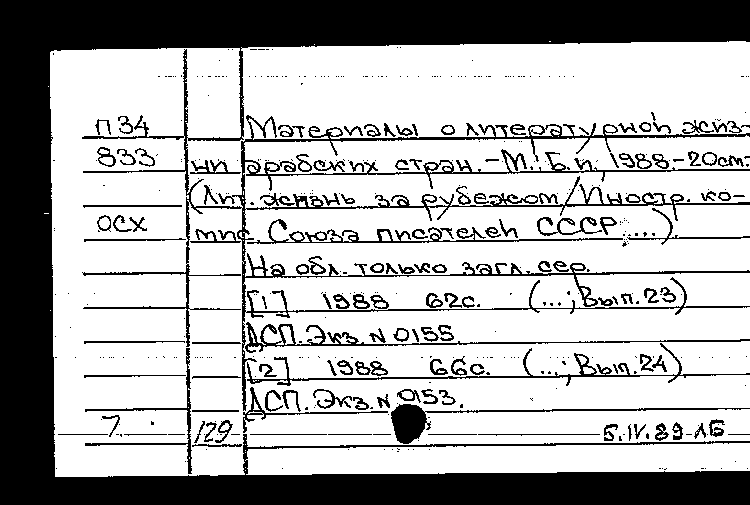 П34 Материалы о литературной жиз-
833 ни арабских стран. - М.: Б.и., 1988. - 20см. -
(Лит. жизнь за рубежом / Иностр. ко-
осх мис. Союза писателей СССР; ...).
На обл. только загл. сер.
[1] 1988 62с. (...; Вып. 23)
ДСП. Экз. N 0155
[2] 1988 66с. (...; Вып. 24)
ДСП. Экз. N 0153.
7. 129 5.IV.89 ЛБ